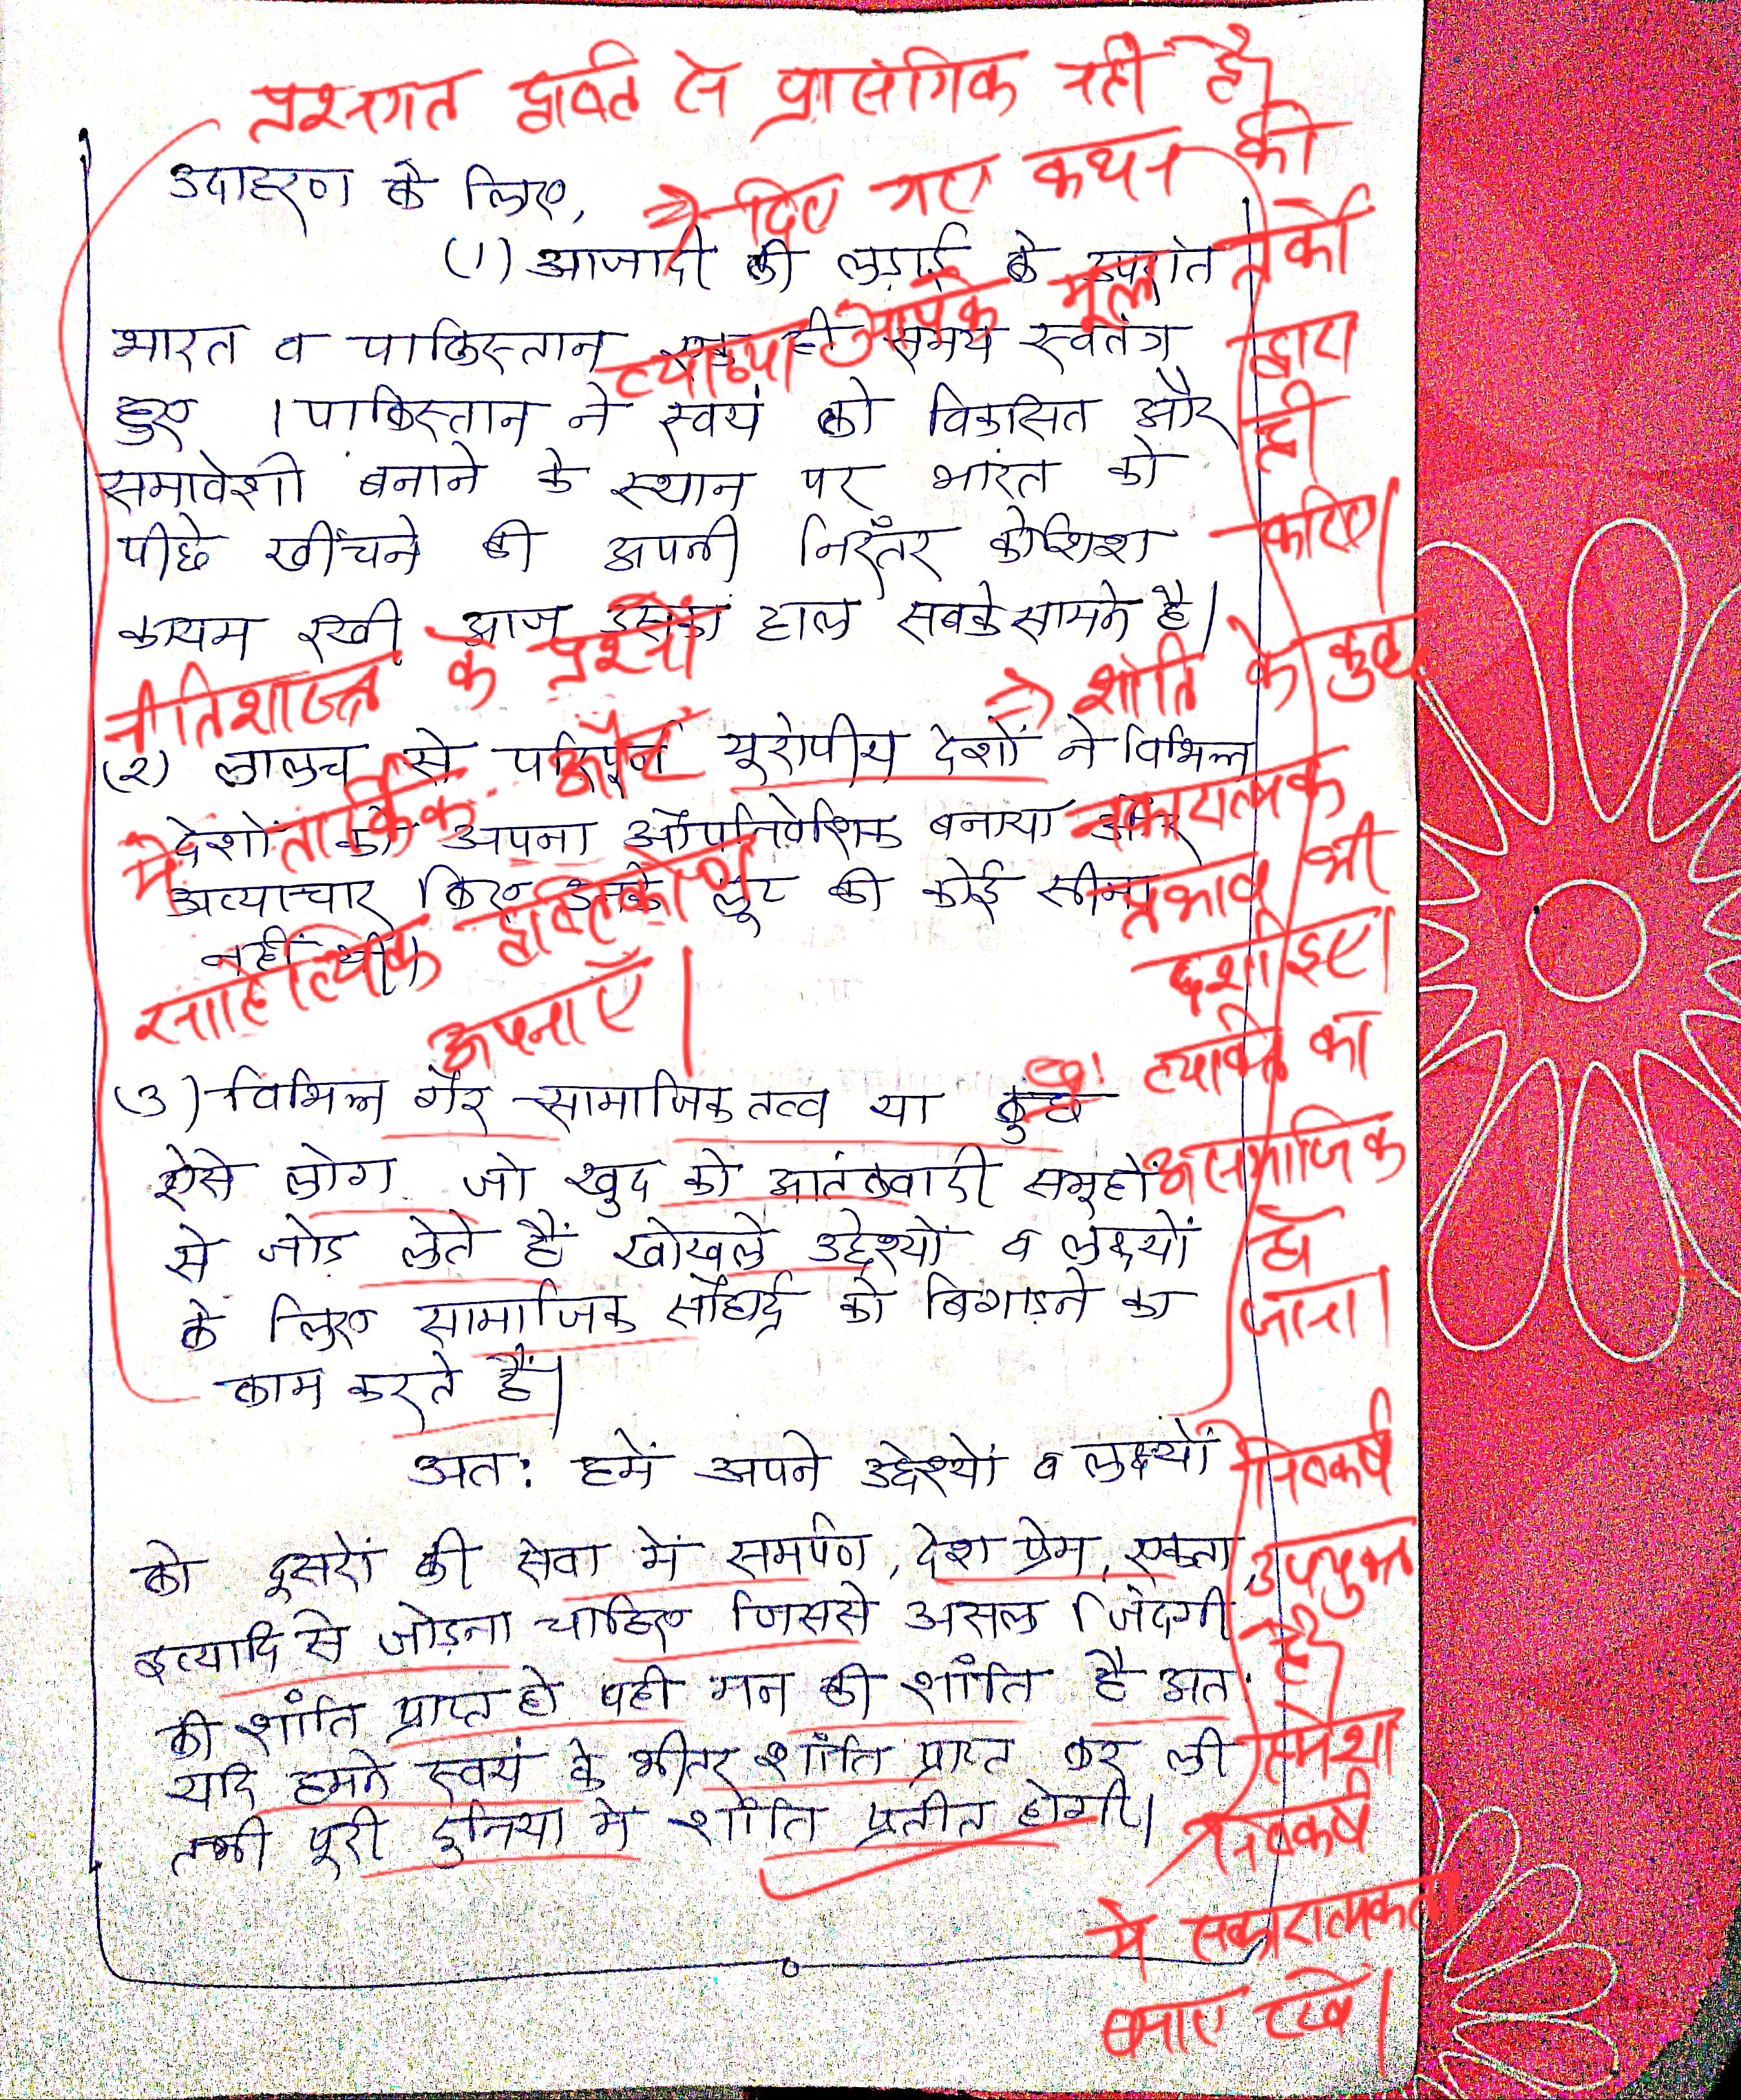 प्रश्नगत दृष्टि से प्रासंगिक नहीं है।
उदाहरण के लिए,
→ दिए गए कथन की
व्याख्या आपके मूल तर्कों
द्वारा
ही
करिए।
(1) आजादी की लड़ाई के उपरांत
भारत व पाकिस्तान एक ही समय स्वतंत्र
हुए । पाकिस्तान ने स्वयं को विकसित और
समावेशी बनाने के स्थान पर भारत को
पीछे खींचने की अपनी निरंतर कोशिश
कायम रखी आज उसका हाल सबके सामने है।
नीतिशास्त्र के प्रश्नों
में तार्किक और
साहित्यिक दृष्टिकोण
अपनाएँ।
→ शांति के कुछ
नकारात्मक
प्रभाव भी
दर्शाइए।
(2) लालच से परिपूर्ण यूरोपीय देशों ने विभिन्न
देशों को अपना औपनिवेशिक बनाया और
अत्याचार किए उनके लूट की कोई सीमा
नहीं थी।
(3) विभिन्न गैर सामाजिक तत्व या कुछ
ऐसे लोग जो खुद को आतंकवादी समूहों
से जोड़ लेते हैं खोखले उद्देश्यों व लक्ष्यों
के लिए सामाजिक सौहार्द्र को बिगाड़ने का
काम करते हैं।
व्यक्ति का
असामाजिक
हो
जाना।
अत: हमें अपने उद्देश्यों व लक्ष्यों
को दूसरों की सेवा में समर्पण, देश प्रेम, एकता,
इत्यादि से जोड़ना चाहिए जिससे असल जिंदगी
की शांति प्राप्त हो वही मन की शांति है अत:
यदि हमने स्वयं के भीतर शांति प्राप्त कर ली
तभी पूरी दुनिया में शांति प्रतीत होगी।
निष्कर्ष
उपयुक्त
है।
हमेशा
निष्कर्ष
मे सकारात्मकता
बनाए रखें।